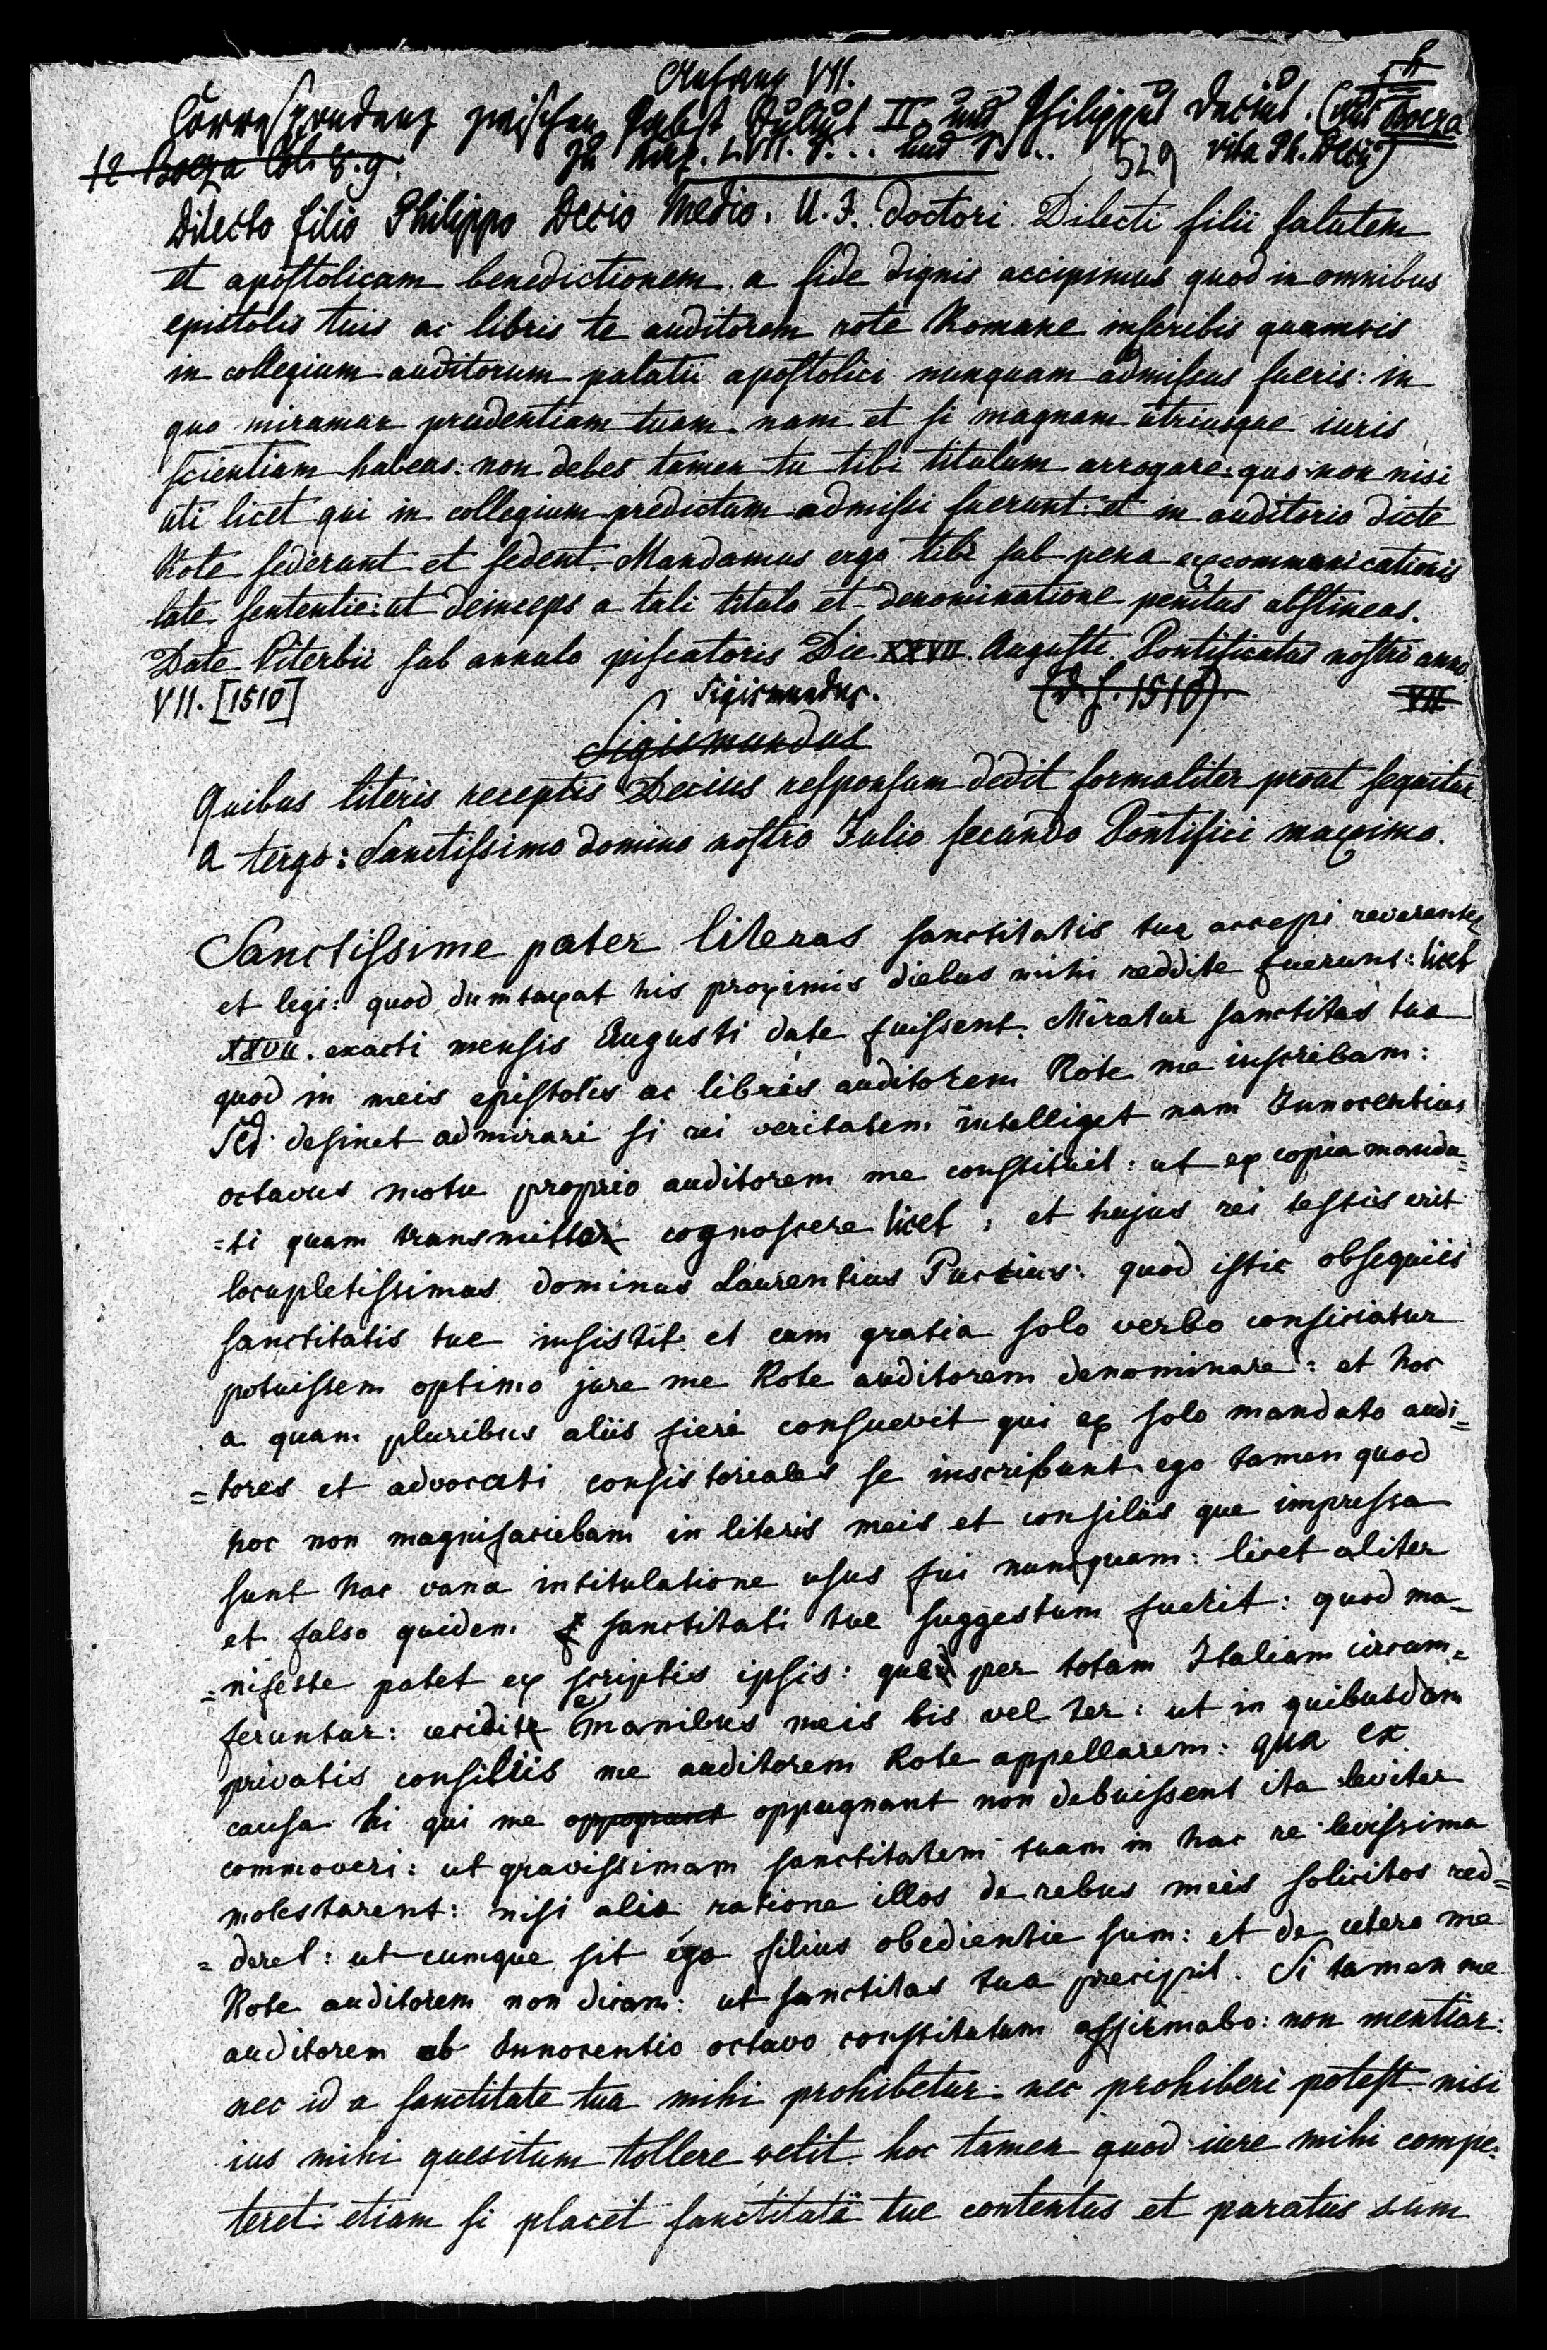 Anhang VII.
Correspondenz zwischen Pabst Julius II. und Philippus Decius. (aus Boeza
12 Boeza Col. 8. 9. Zu Kap. LVII. S... und S... 529 vita Ph. Decii)
Dilecto filio Philippo Decio Medio. U. J. Doctori Dilecti filii salutem
et apostolicam benedictionem. a fide dignis accipimus quod in omnibus
epistolis tuis ac libris te auditorem rote Romane inscribis quamvis
in collegium auditorum palatii apostolici nunquam admissus fueris: in
quo miramur prudentiam tuam. nam et si magnam utriusque iuris
scientiam habeas: non debes tamen tu tibi titulum arrogare. quo non nisi
uti licet qui in collegium predictum admissi fuerunt: et in auditorio dicte
Rote sederunt et sedent. Mandamus ergo tibi sub pena excommunicationis
late sententie: ut deinceps a tali titulo et denominatione penitus abstineas.
Date Viterbii sub annulo piscatoris Die XXVII. Auguste. Pontificatus nostri anno
VII. [1510] Sigismundus. (d. h. 1510). VII
Sigismundus
Quibus literis receptis Decius responsum dedit formaliter prout sequitur
a tergo: Sanctissimo domino nostro Julio secundo Pontifici maximo.
Sanctissime pater literas sanctitatis tue accepi reverenter
et legi: quod dumtaxat his proximis diebus mihi reddite fuerunt: licet
XXVII. exacti mensis Augusti date fuissent. Miratur sanctitas tua
quod in meis epistolis ac libris auditorem Rote me inscribam:
Sed desinet admirari si rei veritatem intelliget nam Innocentius
octavus motu proprio auditorem me constituit: ut ex copia manda=
=ti quam transmitto cognoscere licet: et hujus rei testis erit
locupletissimus dominus Laurentius Puccius: quod istic obsequiis
sanctitatis tue insistit. et cum gratia solo verbo conficiatur
potuissem optimo jure me Rote auditorem denominare: et hoc
a quam pluribus aliis fieri consuevit qui ex solo mandato audi=
=tores et advocati consistoriales se inscribunt. ego tamen quod
hoc non magnifaciebam in literis meis et consiliis que impressa
sunt hac vana intitulatione usus fui nunquam: licet aliter
et falso quidem sanctitati tue suggestum fuerit: quod ma=
=nifeste patet ex scriptis ipsis: que per totam Italiam circum=
feruntur: cecidit e manibus meis bis vel ter: ut in quibusdam
privatis consiliis me auditorem Rote appellarem: qua ex
causa hi qui me oppugnant oppugnant non debuissent ita leviter
commoveri: ut gravissimam sanctitatem tuam in hac re levissima
molestarent: nisi alia ratione illos de rebus meis solicitos red=
=deret: ut cumque sit ego filius obedientie sum: et de cetero me
Rote auditorem non dicam: ut sanctitas tua precipit. Si tamen me
auditorem ab Innocentio octavo constitutum affirmabo: non mentiar:
nec id a sanctitate tua mihi prohibetur: nec prohiberi potest nisi
ius mihi quesitum tollere velit. hoc tamen quod iure mihi compe=
teret: etiam si placet sanctitati tue contentus et paratus sum